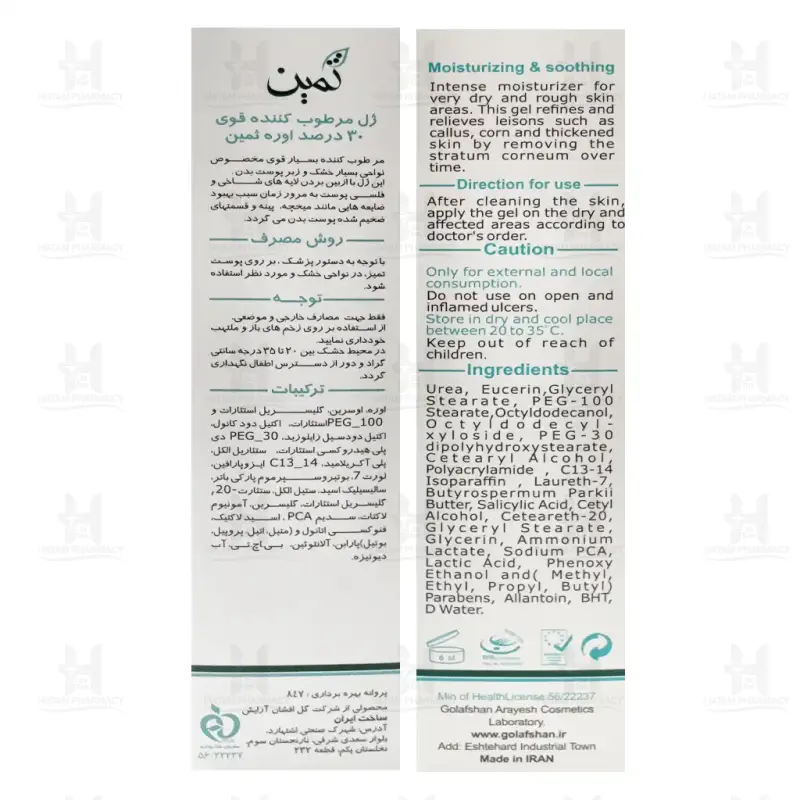 ثمین
ژل مرطوب کننده قوی
۳۰ درصد اوره ثمین
مرطوب کننده بسیار قوی مخصوص
نواحی بسیار خشک و زبر پوست بدن.
این ژل با ازبین بردن لایه های شاخی و
فلسی پوست به مرور زمان سبب بهبود
ضایعه هایی مانند میخچه، پینه و قسمتهای
ضخیم شده پوست بدن می گردد.
روش مصرف
با توجه به دستور پزشک، بر روی پوست
تمیز، در نواحی خشک و مورد نظر استفاده
شود.
توجه
فقط جهت مصارف خارجی و موضعی.
از استفاده بر روی زخم های باز و ملتهب
خودداری نمایید.
در محیط خشک بین ۲۰ تا ۳۵ درجه سانتی
گراد و دور از دسترس اطفال نگهداری
گردد.
ترکیبات
اوره، اوسرین، گلیسریل استئارات و
PEG_100استئارات، اکتیل دود کانول،
اکتیل دودسیل زایلوزید، PEG_30 دی
پلی هیدروکسی استئارات، ستئاریل الکل،
پلی آکریلامید، C13_14 ایزوپارافین،
لورت 7، بوتیروسپرموم پارکی باتر،
سالیسیلیک اسید، ستیل الکل، ستئارت-20،
گلیسریل استئارات، گلیسرین، آمونیوم
لاکتات، سدیم PCA، اسید لاکتیک،
فنوکسی اتانول و (متیل، اتیل، پروپیل،
بوتیل)پارابن، آلانتوئین، بی اچ تی، آب
دیونیزه.
پروانه بهره برداری : ۸۴۷
محصولی از شرکت گل افشان آرایش
ساخت ایران
آدرس: شهرک صنعتی اشتهارد،
بلوار سعدی شرقی، نارنجستان سوم،
نخلستان یکم، قطعه ۲۳۲
۵۶/۲۲۲۳۷
Moisturizing & soothing
Intense moisturizer for
very dry and rough skin
areas. This gel refines and
relieves leisons such as
callus, corn and thickened
skin by removing the
stratum corneum over
time.
Direction for use
After cleaning the skin,
apply the gel on the dry and
affected areas according to
doctor's order.
Caution
Only for external and local
consumption.
Do not use on open and
inflamed ulcers.
Store in dry and cool place
between 20 to 35°C.
Keep out of reach of
children.
Ingredients
Urea, Eucerin,Glyceryl
Stearate, PEG-100
Stearate,Octyldodecanol,
Octyldodecyl-
xyloside, PEG-30
dipolyhydroxystearate,
Cetearyl Alcohol,
Polyacrylamide , C13-14
Isoparaffin , Laureth-7,
Butyrospermum Parkii
Butter, Salicylic Acid, Cetyl
Alcohol, Ceteareth-20,
Glyceryl Stearate,
Glycerin, Ammonium
Lactate, Sodium PCA,
Lactic Acid, Phenoxy
Ethanol and( Methyl,
Ethyl, Propyl, Butyl)
Parabens, Allantoin, BHT,
D Water.
Min of HealthLicense:56/22237
Golafshan Arayesh Cosmetics
Laboratory.
www.golafshan.ir
Add: Eshtehard Industrial Town
Made in IRAN
HATAM PHARMACY